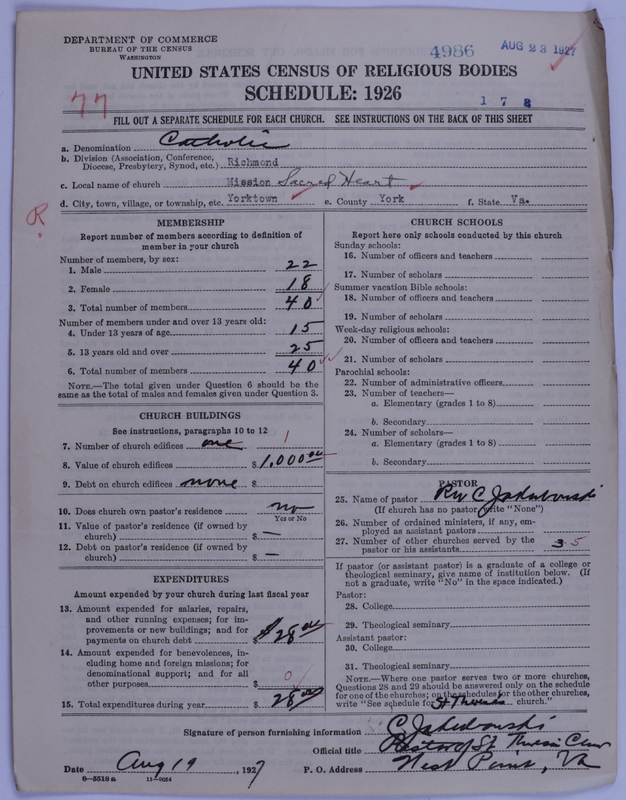 DEPARTMENT OF COMMERCE
BUREAU OF THE CENSUS
WASHINGTON
4986 AUG 23 1927
UNITED STATES CENSUS OF RELIGIOUS BODIES
SCHEDULE: 1926
77
1 7 8
FILL OUT A SEPARATE SCHEDULE FOR EACH CHURCH. SEE INSTRUCTIONS ON THE BACK OF THIS SHEET
a. Denomination Catholic
b. Division (Association, Conference, Diocese, Presbytery, Synod, etc.) Richmond
c. Local name of church Mission Sacred Heart
d. City, town, village, or township, etc. Yorktown e. County York f. State Va.
R
MEMBERSHIP
Report number of members according to definition of
member in your church
Number of members, by sex:
1. Male 22
2. Female 18
3. Total number of members 40
Number of members under and over 13 years old:
4. Under 13 years of age 15
5. 13 years old and over 25
6. Total number of members 40
NOTE.—The total given under Question 6 should be the
same as the total of males and females given under Question 3.
CHURCH BUILDINGS
See instructions, paragraphs 10 to 12
7. Number of church edifices one 1
8. Value of church edifices $1,000 00
9. Debt on church edifices none $
10. Does church own pastor's residence no
Yes or No
11. Value of pastor's residence (if owned by
church) $ —
12. Debt on pastor's residence (if owned by
church) $ —
EXPENDITURES
Amount expended by your church during last fiscal year
13. Amount expended for salaries, repairs,
and other running expenses; for im-
provements or new buildings; and for
payments on church debt $28 00
14. Amount expended for benevolences, in-
cluding home and foreign missions; for
denominational support; and for all
other purposes $ 0
15. Total expenditures during year $ 28 00
CHURCH SCHOOLS
Report here only schools conducted by this church
Sunday schools:
16. Number of officers and teachers
17. Number of scholars
Summer vacation Bible schools:
18. Number of officers and teachers
19. Number of scholars
Week-day religious schools:
20. Number of officers and teachers
21. Number of scholars
Parochial schools:
22. Number of administrative officers
23. Number of teachers—
a. Elementary (grades 1 to 8)
b. Secondary
24. Number of scholars—
a. Elementary (grades 1 to 8)
b. Secondary
PASTOR
25. Name of pastor Rev C Jakubowski
(If church has no pastor write "None")
26. Number of ordained ministers, if any, em-
ployed as assistant pastors
27. Number of other churches served by the
pastor or his assistants 3 5
If pastor (or assistant pastor) is a graduate of a college or
theological seminary, give name of institution below. (If
not a graduate, write "No" in the space indicated.)
Pastor:
28. College
29. Theological seminary
Assistant pastor:
30. College
31. Theological seminary
NOTE.—Where one pastor serves two or more churches,
Questions 28 and 29 should be answered only on the schedule
for one of the churches; on the schedules for the other churches,
write "See schedule for St Theresa church."
Signature of person furnishing information C Jakubowski
Official title Pastor of St
Date Aug 19, 1927 P. O. Address West Point, Va
8—5518 a 11—9054